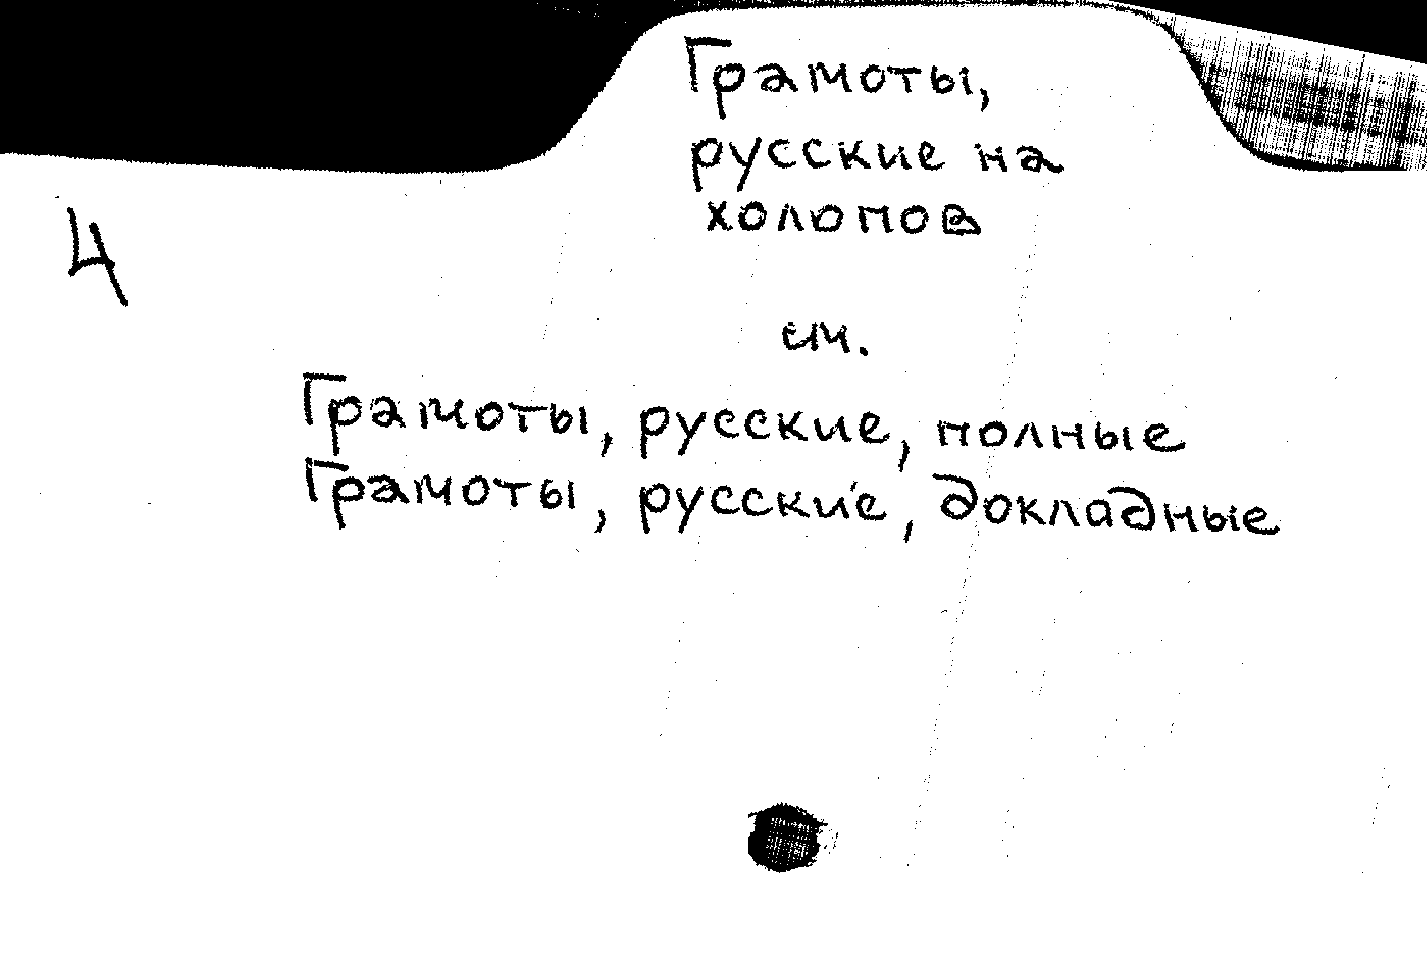 Грамоты,
русские на
холопов
4
см.
Грамоты, русские, полные
Грамоты, русские, докладные